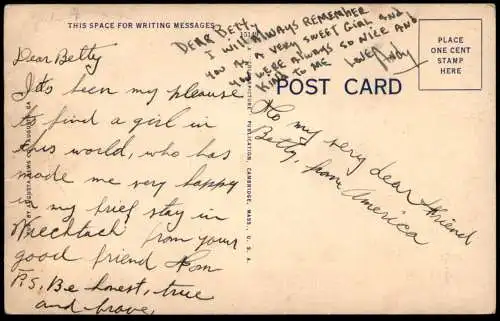 THIS SPACE FOR WRITING MESSAGES
DEAR BETTY
I WILL ALWAYS REMEMBER
YOU AS A VERY SWEET GIRL AND
YOU WERE ALWAYS SO NICE AND
KIND TO ME
LOVE, Andy
POST CARD
PLACE
ONE CENT
STAMP
HERE
Dear Betty
It's been my pleasure
to find a girl in
this world, who has
made me very happy
in my brief stay in
Miechtach from your
good friend Tom
P.S. Be honest, true
and brave.
To my very dear friend
Betty, from America
CAMBRIDGE, MASS., U. S. A.